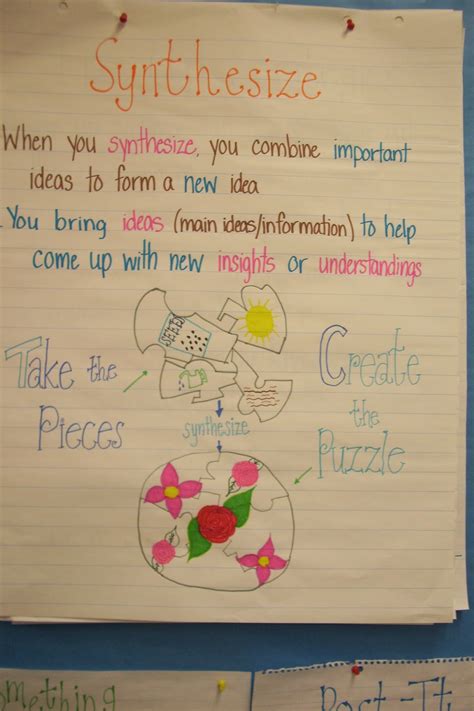 Synthesize
When you synthesize, you combine important
ideas to form a new idea
You bring ideas (main ideas/information) to help
come up with new insights or understandings
SEEDS
Take the
Pieces
synthesize
Create
the
Puzzle
omething
Post-It